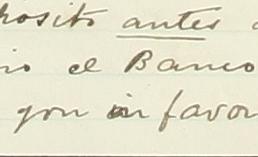 posito antes
io el Banco
gou in favor